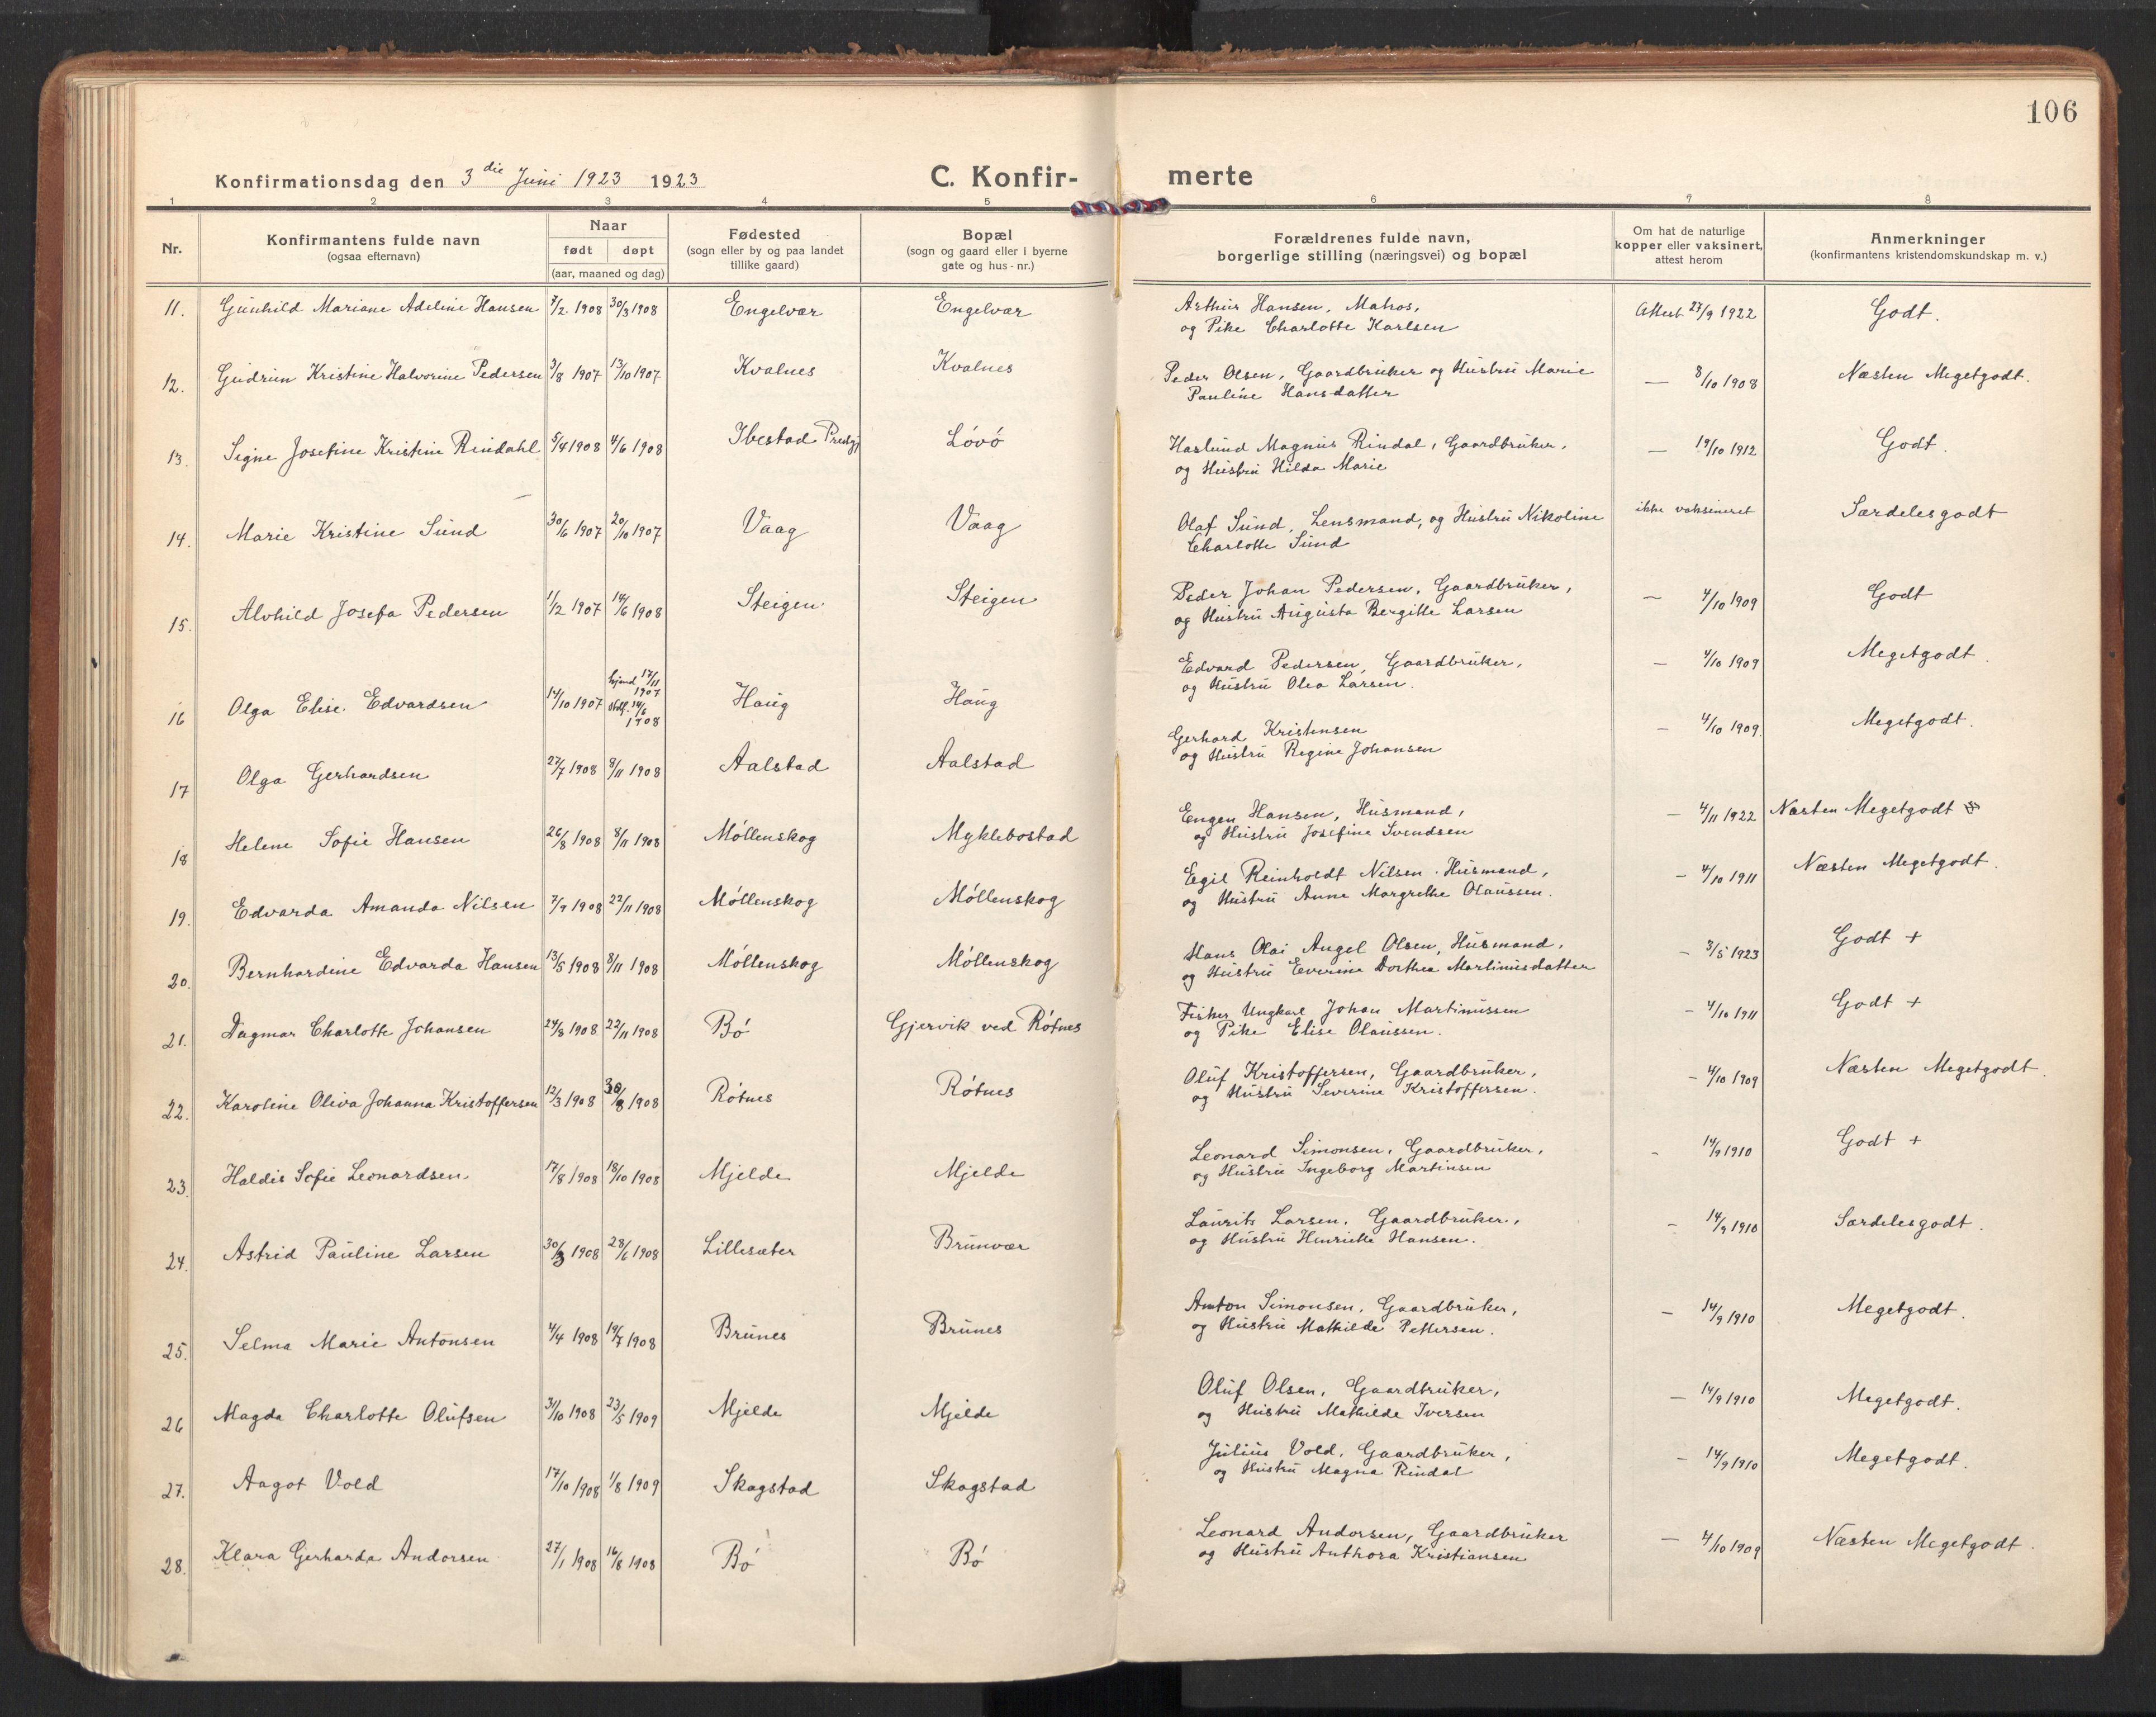 106
Konfirmationsdag den 3die Juni 1923 1923 C. Konfir- merte
1 2 3 4 5 6 7 8
Nr. Konfirmantens fulde navn (ogsaa efternavn) Naar født døpt (aar, maaned og dag) Fødested (sogn eller by og paa landet tillike gaard) Bopæl (sogn og gaard eller i byerne gate og hus-nr.) Forældrenes fulde navn, borgerlige stilling (næringsvei) og bopæl Om hat de naturlige kopper eller vaksinert, attest herom Anmerkninger (konfirmantens kristendomskundskap m. v.)
11. Gunhild Mariane Adeline Hansen 7/2 1908 30/3 1908 Engelvær Engelvær Arthur Hansen, Matros, Attest 27/9 1922 Godt.
og Pike Charlotte Karlsen
12. Gudrun Kristine Halvorine Pedersen 3/8 1907 13/10 1907 Kvalnes Kvalnes Peder Olsen, Gaardbruker og Hustru Marie — 8/10 1908 Næsten Megetgodt.
Pauline Hansdatter
13. Signe Josefine Kristine Reindahl 5/4 1908 4/6 1908 Ibestad Prestgj Lóvó Haslund Magnus Rindal, Gaardbruker, — 19/10 1912 Godt.
og Hustru Hilda Marie
14. Marie Kristine Sund 30/6 1907 20/10 1907 Vaag Vaag Olaf Sund, Lensmand, og Hustru Nikoline ikke vaksineret Særdelesgodt
Charlotte Sund
15. Alvhild Josefa Pedersen 1/12 1907 14/6 1908 Steigen Steigen Peder Johan Pedersen, Gaardbruker, — 4/10 1909 Godt
og Hustru Augusta Bergitte Larsen
16 Olga Elise Edvardsen 14/10 1907 hjemd 17/11 1907 14/6 1908 Haug Haug Edvard Pedersen, Gaardbruker, — 4/10 1909 Megetgodt.
og Hustru Olea Larsen.
17 Olga Gerhardsen 27/7 1908 8/11 1908 Aalstad Aalstad Gerhard Kristensen — 4/10 1909 Megetgodt.
og Hustru Regine Johansen
18 Helene Sofie Hansen 26/8 1908 8/11 1908 Móllenskog Myklebostad Engen Hansen, Husmand, — 4/11 1922 Næsten Megetgodt
og Hustru Josefine Svendsen
19. Edvarda Amanda Nilsen 7/9 1908 22/11 1908 Móllenskog Móllenskog Egil Reinholdt Nilsen. Husmand, — 4/10 1911 Næsten Megetgodt.
og Hustru Anne Margrethe Olaussen.
20. Bernhardine Edvarda Hansen 13/5 1908 8/11 1908 Móllenskog Móllenskog Hans Olai Angel Olsen, Husmand, — 3/5 1923 Godt +
og Hustru Everine Dorthea Martinusdatter
21. Dagmar Charlotte Johansen 24/8 1908 22/11 1908 Bó Gjervik ved Rótnes Fisker Ungkarl Johan Martinussen — 4/10 1911 Godt +
og Pike Elise Olaussen.
22. Karoline Oliva Johanna Kristoffersen 12/3 1908 30/8 1908 Rótnes Rótnes Oluf Kristoffersen, Gaardbruker, — 4/10 1909 Næsten Megetgodt.
og Hustru Severine Kristoffersen.
23. Haldis Sofie Leonardsen 17/8 1908 18/10 1908 Mjelde Mjelde Leonard Simonsen, Gaardbruker, - 14/9 1910 Godt +
og Hustru Ingeborg Martinsen
24. Astrid Pauline Larsen 30/3 1908 28/6 1908 Lillesæter Brunvær Laurits Larsen, Gaardbruker, - 14/9 1910 Særdelesgodt.
og Hustru Henrikke Hansen.
25. Selma Marie Antonsen 4/4 1908 19/7 1908 Brunes Brunes Anton Simonsen, Gaardbruker, — 14/9 1910 Megetgodt.
og Hustru Mathilde Pettersen.
26 Magda Charlotte Olufsen 31/10 1908 23/5 1909 Mjelde Mjelde Oluf Olsen, Gaardbruker, — 14/9 1910 Megetgodt.
og Hustru Mathilde Iversen
27. Aagot Vold 17/10 1908 1/8 1909 Skagstad Skagstad Julius Vold, Gaardbruker, — 14/9 1910 Megetgodt.
og Hustru Magna Rindal
28. Klara Gerharda Andorsen 27/1 1908 16/8 1908 Bó Bó Leonard Andorsen, Gaardbruker — 4/10 1909 Næsten Megetgodt.
og Hustru Anthora Kristiansen